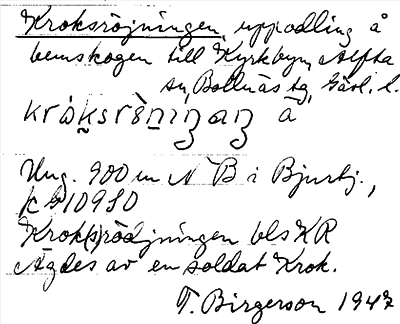 Kroksröjningen, uppodling å
hemskogen till Kyrkbyn, Alfta
sn, Bollnäs tg, Gävl. l.
å
Ung. 900 m N B i Bjurbj.,
10980
Krok(s)rödjningen bls KR
Ägdes av en soldat Krok.
T. Birgerson 1947